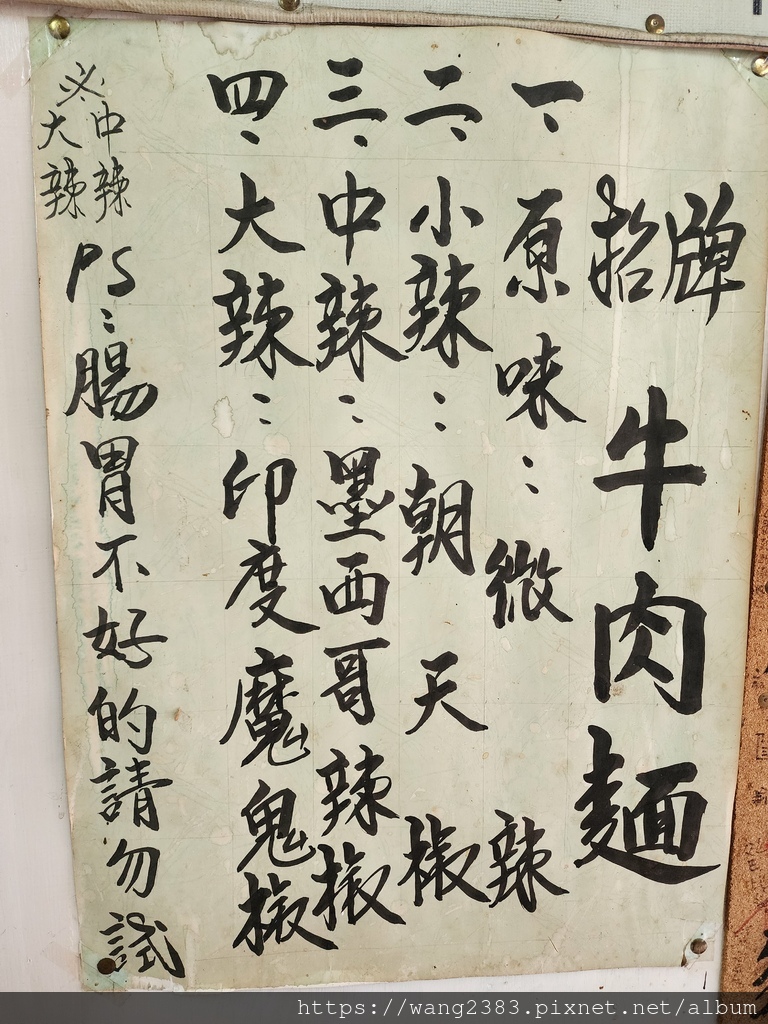 招牌 牛肉麵
一、原味：微辣
二、小辣：朝天椒
三、中辣：墨西哥辣椒
四、大辣：印度魔鬼椒
※中辣
大辣
PS：腸胃不好的請勿試
https://wang2383.pixnet.net/album